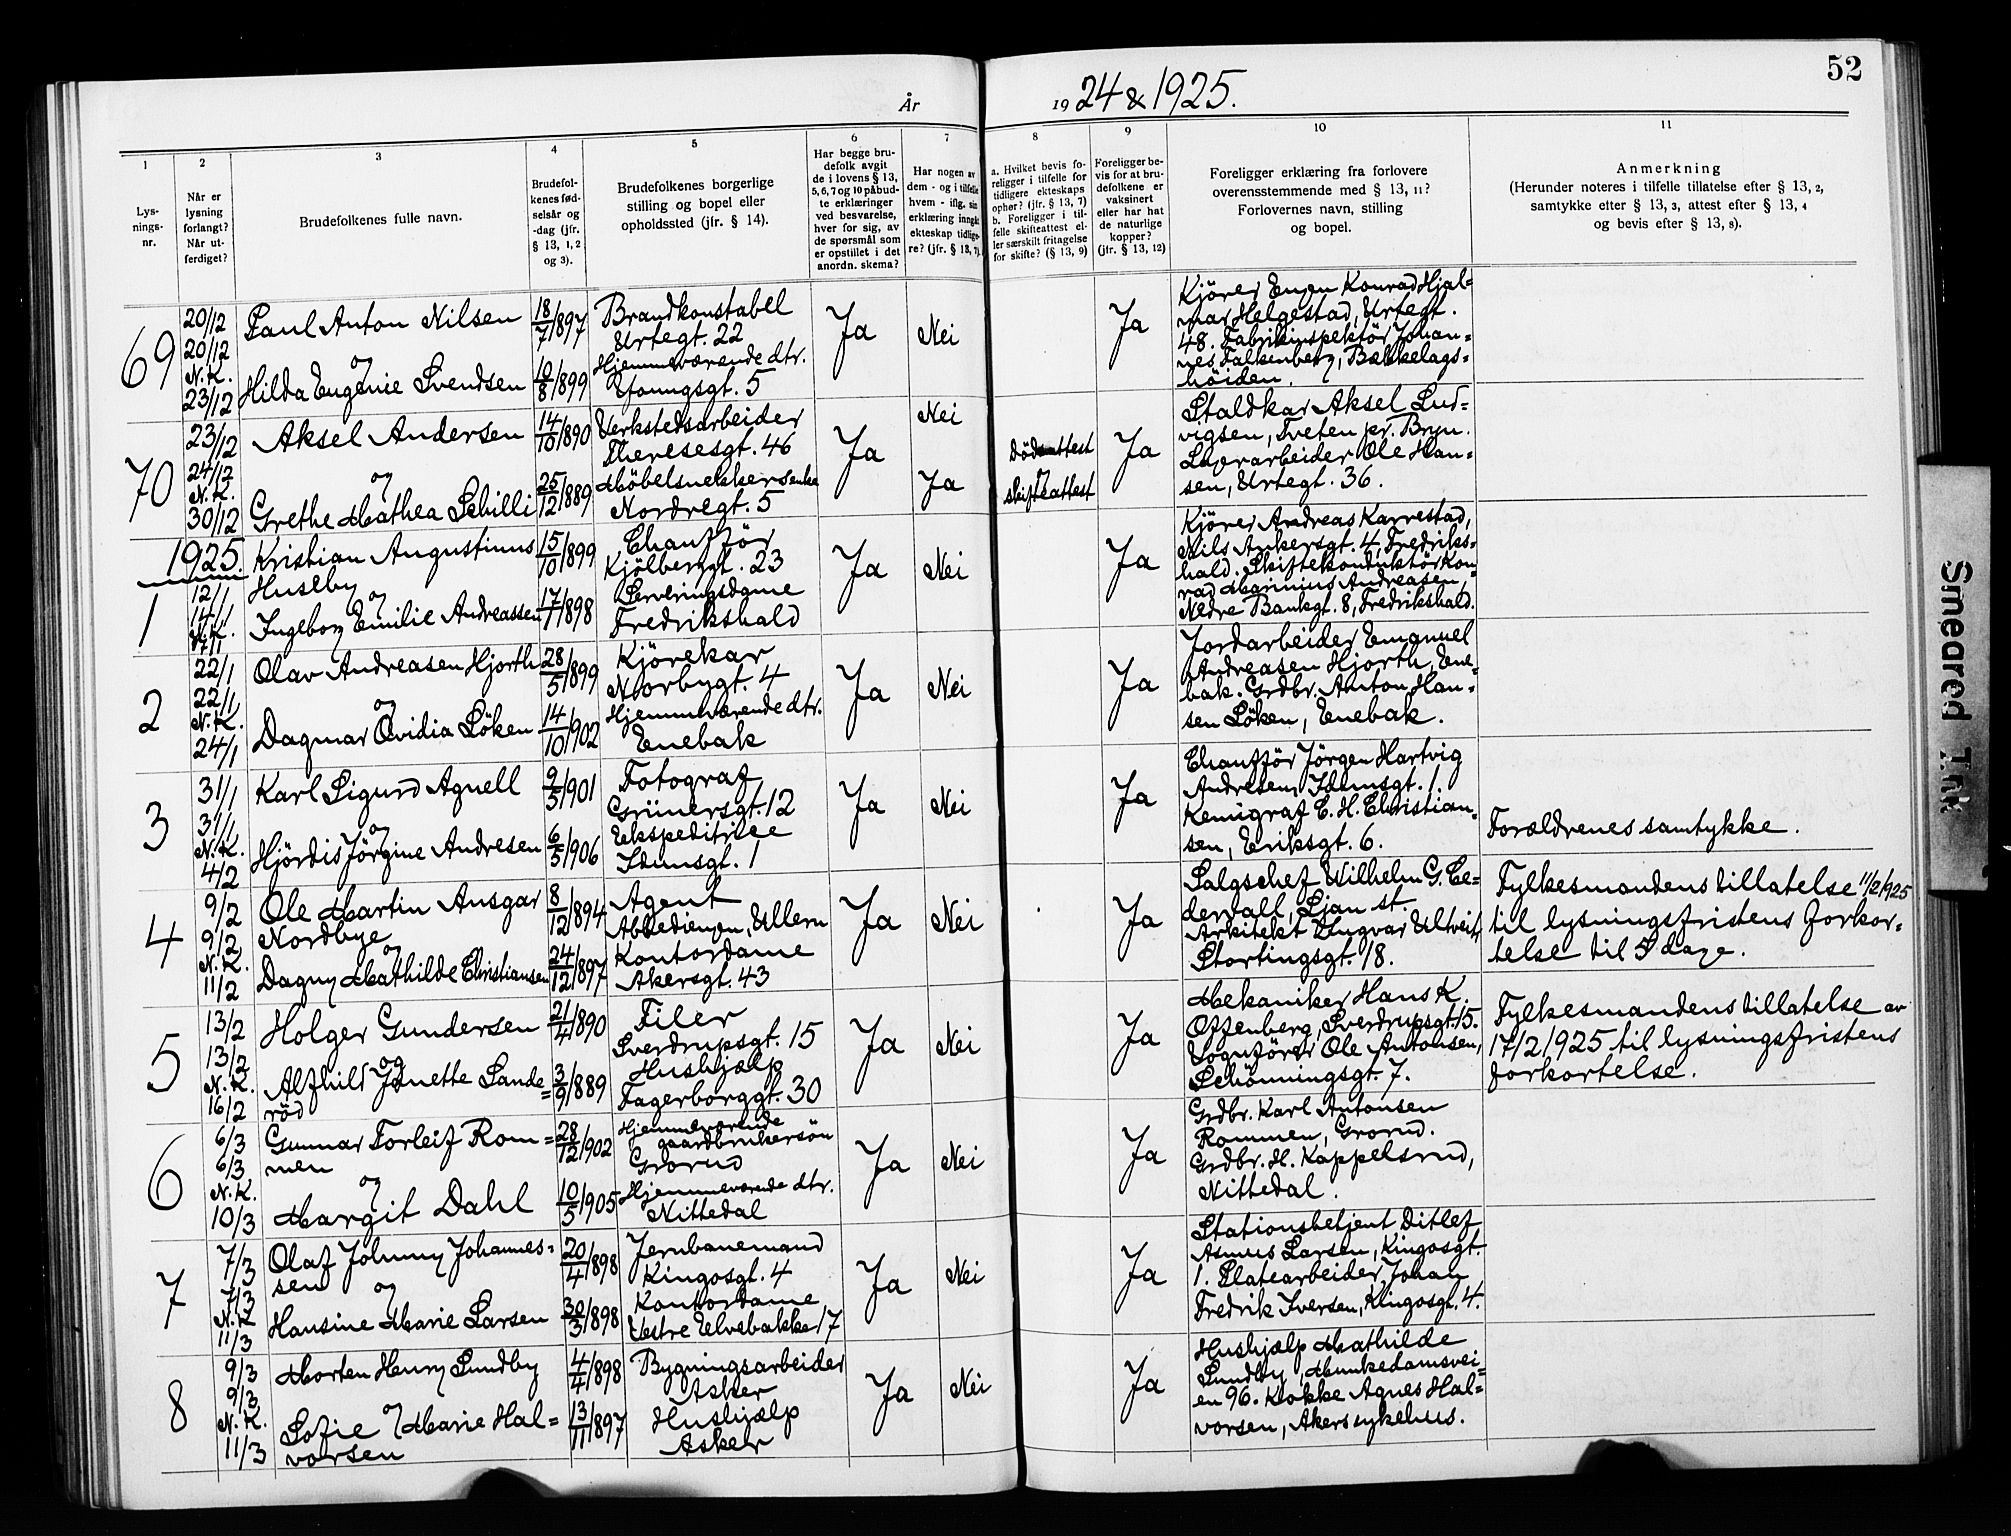 52
År 1924 & 1925.
1
2
3
4
5
6
7
8
9
10
11
Lys-
nings-
nr.
Når er
lysning
forlangt?
Når ut-
ferdiget?
Brudefolkenes fulle navn.
Brudefol-
kenes fød-
selsår og
-dag (jfr.
§ 13, 1, 2
og 3).
Brudefolkenes borgerlige
stilling og bopel eller
opholdssted (jfr. § 14).
Har begge bru-
defolk avgit
de i lovens § 13,
5, 6, 7 og 10 påbud-
te erklæringer
ved besvarelse,
hver for sig, av
de spørsmål som
er opstillet i det
anordn. skema?
Har nogen av
dem - og i tilfelle
hvem - iflg. sin
erklæring inngått
ekteskap tidlige-
re? (jfr. § 13, 7).
a. Hvilket bevis fo-
religger i tilfelle for
tidligere ekteskaps
ophør? (jfr. § 13, 7)
b. Foreligger i til-
felle skifteattest el-
ler særskilt fritagelse
for skifte? (§ 13, 9)
Foreligger be-
vis for at bru-
defolkene er
vaksinert
eller har hat
de naturlige
kopper?
(jfr. § 13, 12)
Foreligger erklæring fra forlovere
overensstemmende med § 13, 11?
Forlovernes navn, stilling
og bopel.
Anmerkning
(Herunder noteres i tilfelle tillatelse efter § 13, 2,
samtykke efter § 13, 3, attest efter § 13, 4
og bevis efter § 13, 8).
69
20/12
20/12
N.K.
23/12
Paul Anton Nilsen
og
Hilda Eugenie Svendsen
18/7 1897
10/8 1899
Brandkonstabel
Urtegt. 22
Hjemmeværende dtr.
Youngsgt. 5
Ja
Nei
Ja
Kjører Engen Konrad Hjal-
mar Helgestad, Urtegt.
48. Fabrikinspektør Johan-
nes Falkenberg, Bækkelags-
høiden.
70
23/12
24/12
N.K.
30/12
Aksel Andersen
og
Grethe Mathea Schilli
14/10 1890
25/12 1889
Verkstedsarbeider
Theresesgt. 46
Møbelsnekkersenke
Nordregt. 5
Ja
Nei
Ja
Dødsattest
Skifteattest
Ja
Staldkar Aksel Lud-
vigsen, Tveten pr. Bryn.
Lagerarbeider Ole Han-
sen, Urtegt. 36.
1925.
1
12/1
14/1
N.K.
Kristian Augustinus
Huseby
og
Ingeborg Emilie Andreassen
15/10 1899
17/1 1898
Chauffør
Kjølberggt. 23
Serveringsdame
Fredrikshald
Ja
Nei
Ja
Kjører Andreas Karrestad,
Nils Ankersgt. 4, Fredriks-
hald. Skiftekonduktør Kon-
rad Marinius Andreasen,
Nedre Bankgt. 8, Fredrikshald.
2
22/1
22/1
N.K.
24/1
Olav Andreasen Hjorth
og
Dagmar Ovidia Løken
28/5 1899
14/10 1902
Kjørekar
Norbygt. 4
Hjemmeværende dtr.
Enebak
Ja
Nei
Ja
Jordarbeider Emanuel
Andreasen Hjorth, Ene-
bak. Grdbr. Anton Han-
sen Løken, Enebak.
3
31/1
31/1
N.K.
4/2
Karl Sigurd Agnell
og
Hjørdis Jørgine Andresen
9/5 1901
6/5 1906
Fotograf
Grünersgt. 12
Ekspeditrice
Idunsgt. 1
Ja
Nei
Ja
Chauffør Jørgen Hartvig
Andresen, Idunsgt. 1.
Kemigraf C. H. Christian-
sen, Eriksgt. 6.
Forældrenes samtykke.
4
9/2
9/2
N.K.
11/2
Ole Martin Ansgar
Nordbye
og
Dagny Mathilde Christiansen
8/12 1894
24/12 1897
Agent
Abbediengen, Ullern
Kontordame
Akersgt. 43
Ja
Nei
Ja
Salgschef Wilhelm G. Ce-
dervall, Ljan st.
Arkitekt Ingvar Utveit,
Stortingsgt. 18.
Fylkesmandens tillatelse 11/2 1925
til lysningsfristens forkor-
telse til 5 dage.
5
13/2
13/2
N.K.
16/2
Holger Gundersen
og
Alfhild Janette Sande-
rød
21/4 1890
3/9 1889
Filer
Sverdrupsgt. 15
Hushjælp
Fagerborggt. 30
Ja
Nei
Ja
Mekaniker Hans K.
Offenberg, Sverdrupsgt. 15.
Vognfører Ole Antonsen,
Schønningsgt. 7.
Fylkesmandens tillatelse av
17/2 1925 til lysningsfristens
forkortelse.
6
6/3
6/3
N.K.
10/3
Gunnar Torleif Rom-
men
og
Margit Dahl
28/12 1902
10/5 1905
Hjemmeværende
gaardbrukersøn
Grorud
Hjemmeværende dtr.
Nittedal
Ja
Nei
Ja
Grdbr. Karl Antonsen
Rommen, Grorud.
Grdbr. H. Kappelsrud,
Nittedal.
7
7/3
7/3
N.K.
11/3
Olaf Johnny Johannes-
sen
og
Hansine Marie Larsen
20/4 1898
30/3 1898
Jernbanemand
Kingosgt. 4
Kontordame
Vestre Elvebakke 17
Ja
Nei
Ja
Stationsbetjent Ditlef
Asmus Larsen, Kingosgt.
1. Platearbeider Johan
Fredrik Iversen, Kingosgt. 4.
8
9/3
9/3
N.K.
11/3
Morten Henry Sundby
og
Sofie Marie Hal-
vorsen
4/4 1898
13/11 1897
Bygningsarbeider
Asker
Hushjælp
Asker
Ja
Nei
Ja
Hushjælp Mathilde
Sundby, Munkedamsvei-
en 96. Kokke Agnes Hal-
vorsen, Akers sykehus.
Smeared Ink